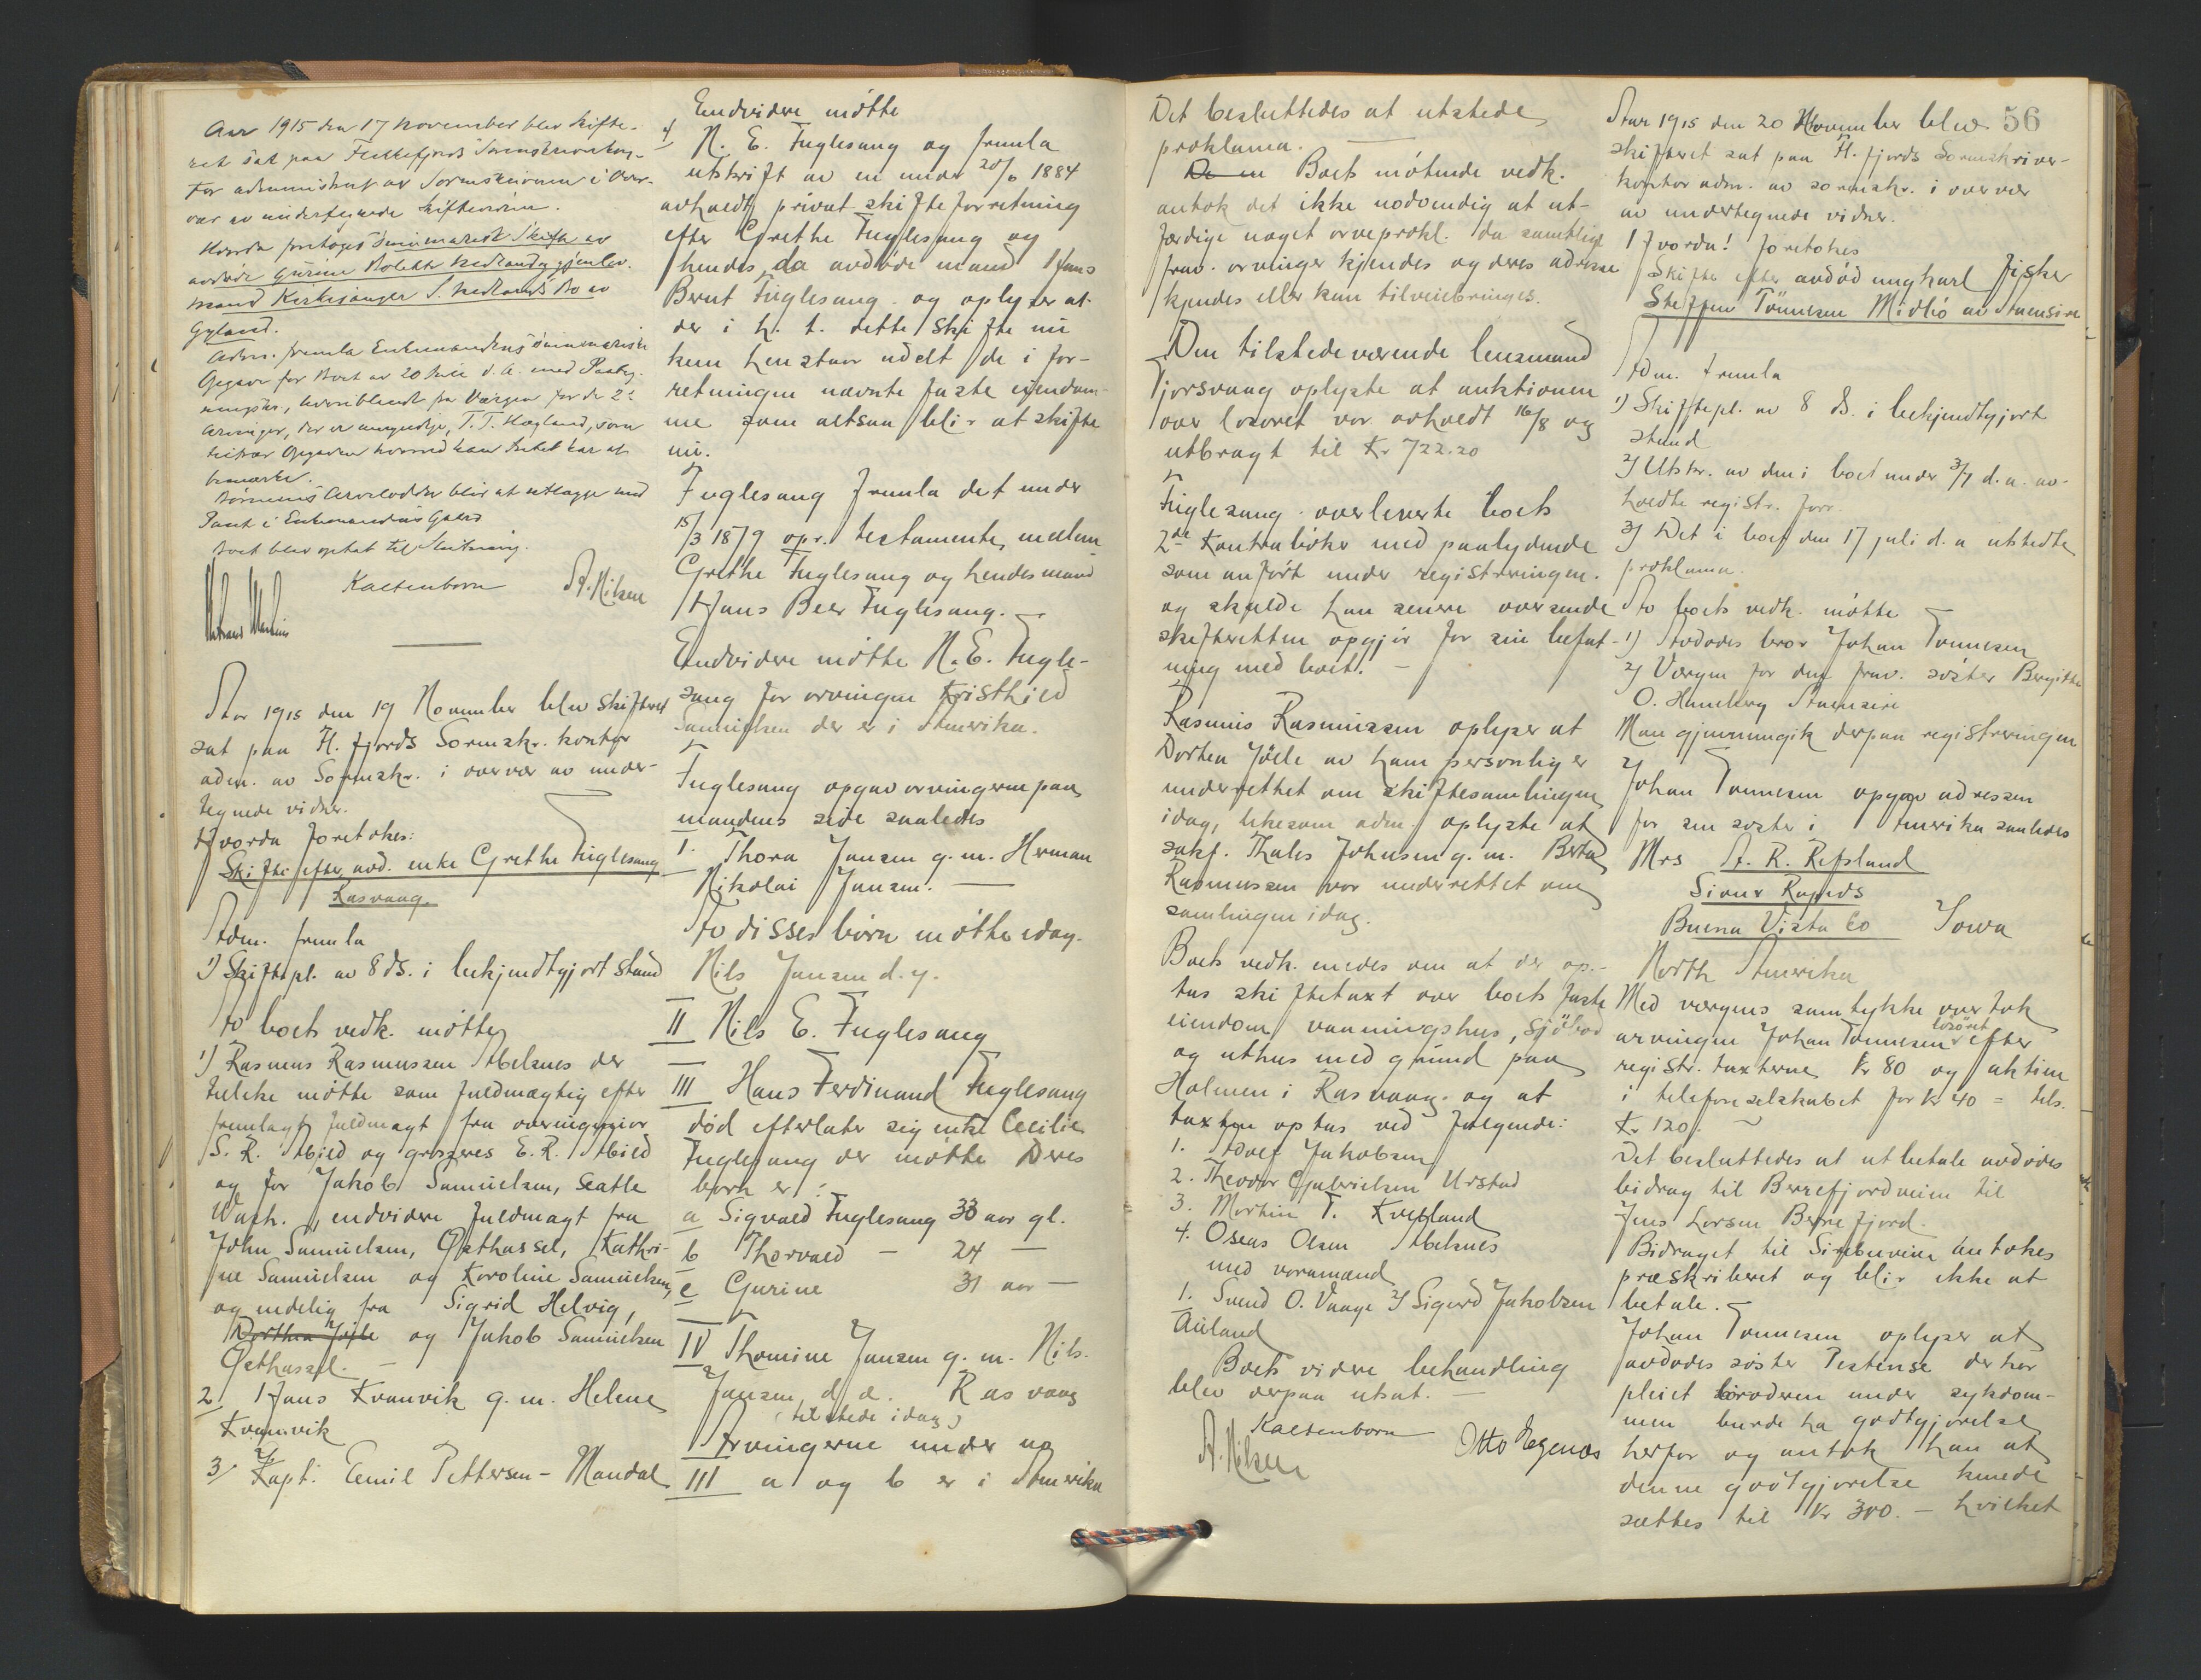 Aar 1915 den 17 November blev skifte-
ret sat paa Flekkefjords Sorenskriverkon-
tor administrert av Sorenskriveren i Over-
vær av undertegnede Skiftevidner.
Hvorda foretoges Summarisk Skifte av
avdøde Gurine Bolette Hedlands og gjenlev.
mand Kirkesanger S. Hedlands Bo av
Gyland.
Adm. fremla Enkemandens summariske
Opgave for Boet av 20 Juli d. A. med Paateg-
ninger, hvoriblandt fra Værgen for de 2de
Arvinger, der er umyndige, T. T. Hægland, som
Opgaven hvormed han Intet har at
bemærke.
Børnenes Arvelodder blir at utlægge med
Pant i Enkemandens Gaard
Boet blev optat til Slutning.
Kaltenborn A. Nilsen
Aar 1915 den 19 November blev skifteret
sat paa H. fjords Sornskr. kontor
adm. av Sornskr. i overvær av under-
tegnede vidner.
Hvorda foretokes:
Skifte efter avd. enke Grethe Fuglesang
Rasvaag.
Adm. fremla
1) Skiftepl. av 8 ds. i bekjendtgjort stand
Av boets vedk. møtte
1) Rasmus Rasmussen Abelsnes der
tillike møtte som fuldmægtig efter
fremlagt fuldmagt fra overingeniør
S. R. Abild og grosseres E. R. Abild
og for Jakob Samuelsen, Seatle
Wash., endvidere fuldmagt fra
John Samuelsen, Østhassel, Kathri-
ne Samuelsen og Karoline Samuelsen,
og endelig fra Sigrid Helvig,
Dorthea Jølle og Jakob Samuelsen
Østhassel. —
2) Hans Kvanvik g. m. Helene
Kvanvik
3) Kapt. Emil Pettersen - Mandal
Endvidere møtte
4) N. E. Fuglesang og fremla
utskrift av en under 20/6 1884
avholdt privat skifteforretning
efter Grethe Fuglesang og
hendes da avdøde mand Hans
Bernt Fuglesang. og oplyser at
der i h. t. dette skifte nu
kun henstaar udelt de i for-
retningen nævnte faste eiendom-
me som altsaa blir at skifte
nu.
Fuglesang fremla det under
15/3 1879 opr. testamente mellem
Grethe Fuglesang og hendes mand
Hans Beer Fuglesang. —
Endvidere møtte N. E. Fugle-
sang for arvingen Kristhild
Samuelsen der er i Amerika.
Fuglesang opgav arvingerne paa
mandens side saaledes
I. Thora Jansen g. m. Herman
Nikolai Jansen. —
Av disses børn møtte idag
Nils Jansen d. y.
II Nils E. Fuglesang
III Hans Ferdinand Fuglesang
død efterlater sig enke Cecilie
Fuglesang der møtte Deres
børn er:
a Sigvald Fuglesang 33 aar gl.
b Thorvald — 24 —
c Gurine 31 aar —
IV Thomine Jansen g. m. Nils
Jansen d. æ. Rasvaag
(tilstede idag)
Arvingerne under
III a og b er i Amerika
Det besluttedes at utstede
proklama. —
De en Boets møtende vedk.
antok det ikke nødvendig at ut-
færdige noget arveprokl. da samtlige
frav. arvinger kjendes og deres adresse
kjendes eller kan tilveiebringes.
Den tilstedeværende lensmand
Tjorsvaag oplyste at auktionen
over løsøret var avholdt 16/8 og
utbragt til Kr 722.20
Fuglesang overleverte boets
2de Kontrabøker med paalydende
som anført under registreringen.
og skulde han senere oversende
skifteretten opgjør for sin befat-
ning med boet. —
Rasmus Rasmussen oplyser at
Dorthea Jølle av ham personlig er
underrettet om skiftesamlingen
idag, likesom adm. oplyste at
sakf. Thales Johnsen g. m. Berta
Rasmussen var underrettet om
samlingen idag.
Boets vedk. enedes om at der op-
tas skiftetaxt over boets faste
eiendom vaaningshus, sjøbod
og uthus med grund paa
Holmen i Rasvaag. og at
taxten optas ved følgende:
1. Adolf Jakobsen
2. Theodor Gabrielsen Urstad
3. Morthin T. Kvelland
4. Oseas Olsen Abelsnes
med varamænd
1. Svend O. Vaage 2) Sigurd Jakobsen
Aaland
Boets videre behandling
blev derpaa utsat. —
Kaltenborn
A. Nilsen Otto Egenæs
56
Aar 1915 den 20 November blev
skifteret sat paa H. fjords Sornskriver-
kontor adm. av sornskr. i overvær
av undertegnede vidner.
Hvorda! foretokes
Skifte efter avdød ungkarl fisker
Steffen Tønnesen Midbø av Aaensire
Adm. fremla
1) Skiftepl. av 8 ds. i bekjendtgjort
stand
2) Utskr. av den i boet under 3/7 d. a. av-
holdte registr. forr.
3) Det i boet den 17 juli d. a utstedte
proklama.
Av boets vedk. møtte
1) Avdødes bror Johan Tønnesen
2) Værgen for den frav. søster Bergitte
O. Hamberg Aaensire
Man gjennemgik derpaa registreringen
Johan Tønnesen opgav adressen
for sin søster i Amerika saaledes
Mrs A. R. Refsland
Sioux Rapids
Buena Vista Co Iowa
North Amerika
Med værgens samtykke overtok
arvingen Johan Tønnesen løsøret efter
registr. taxterne Kr 80 og aktien
i telefonselskabet for Kr 40 = tils.
Kr 120.
Det besluttedes at utbetale avdødes
bidrag til Berrefjordveien til
Jens Larsen Berrefjord.
Bidraget til antokes
præskriberet og blir ikke at
betale.
Johan Tønnesen oplyser at
avdødes søster der har
pleiet broderen under sykdom-
men burde ha godtgjørelse
herfor og antok han at
denne godtgjørelse kunde
sættes til Kr 300. — hvilket